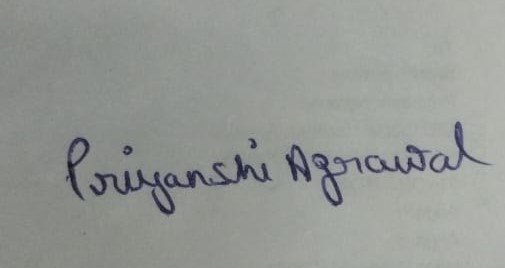 Priyanshi Agrawal